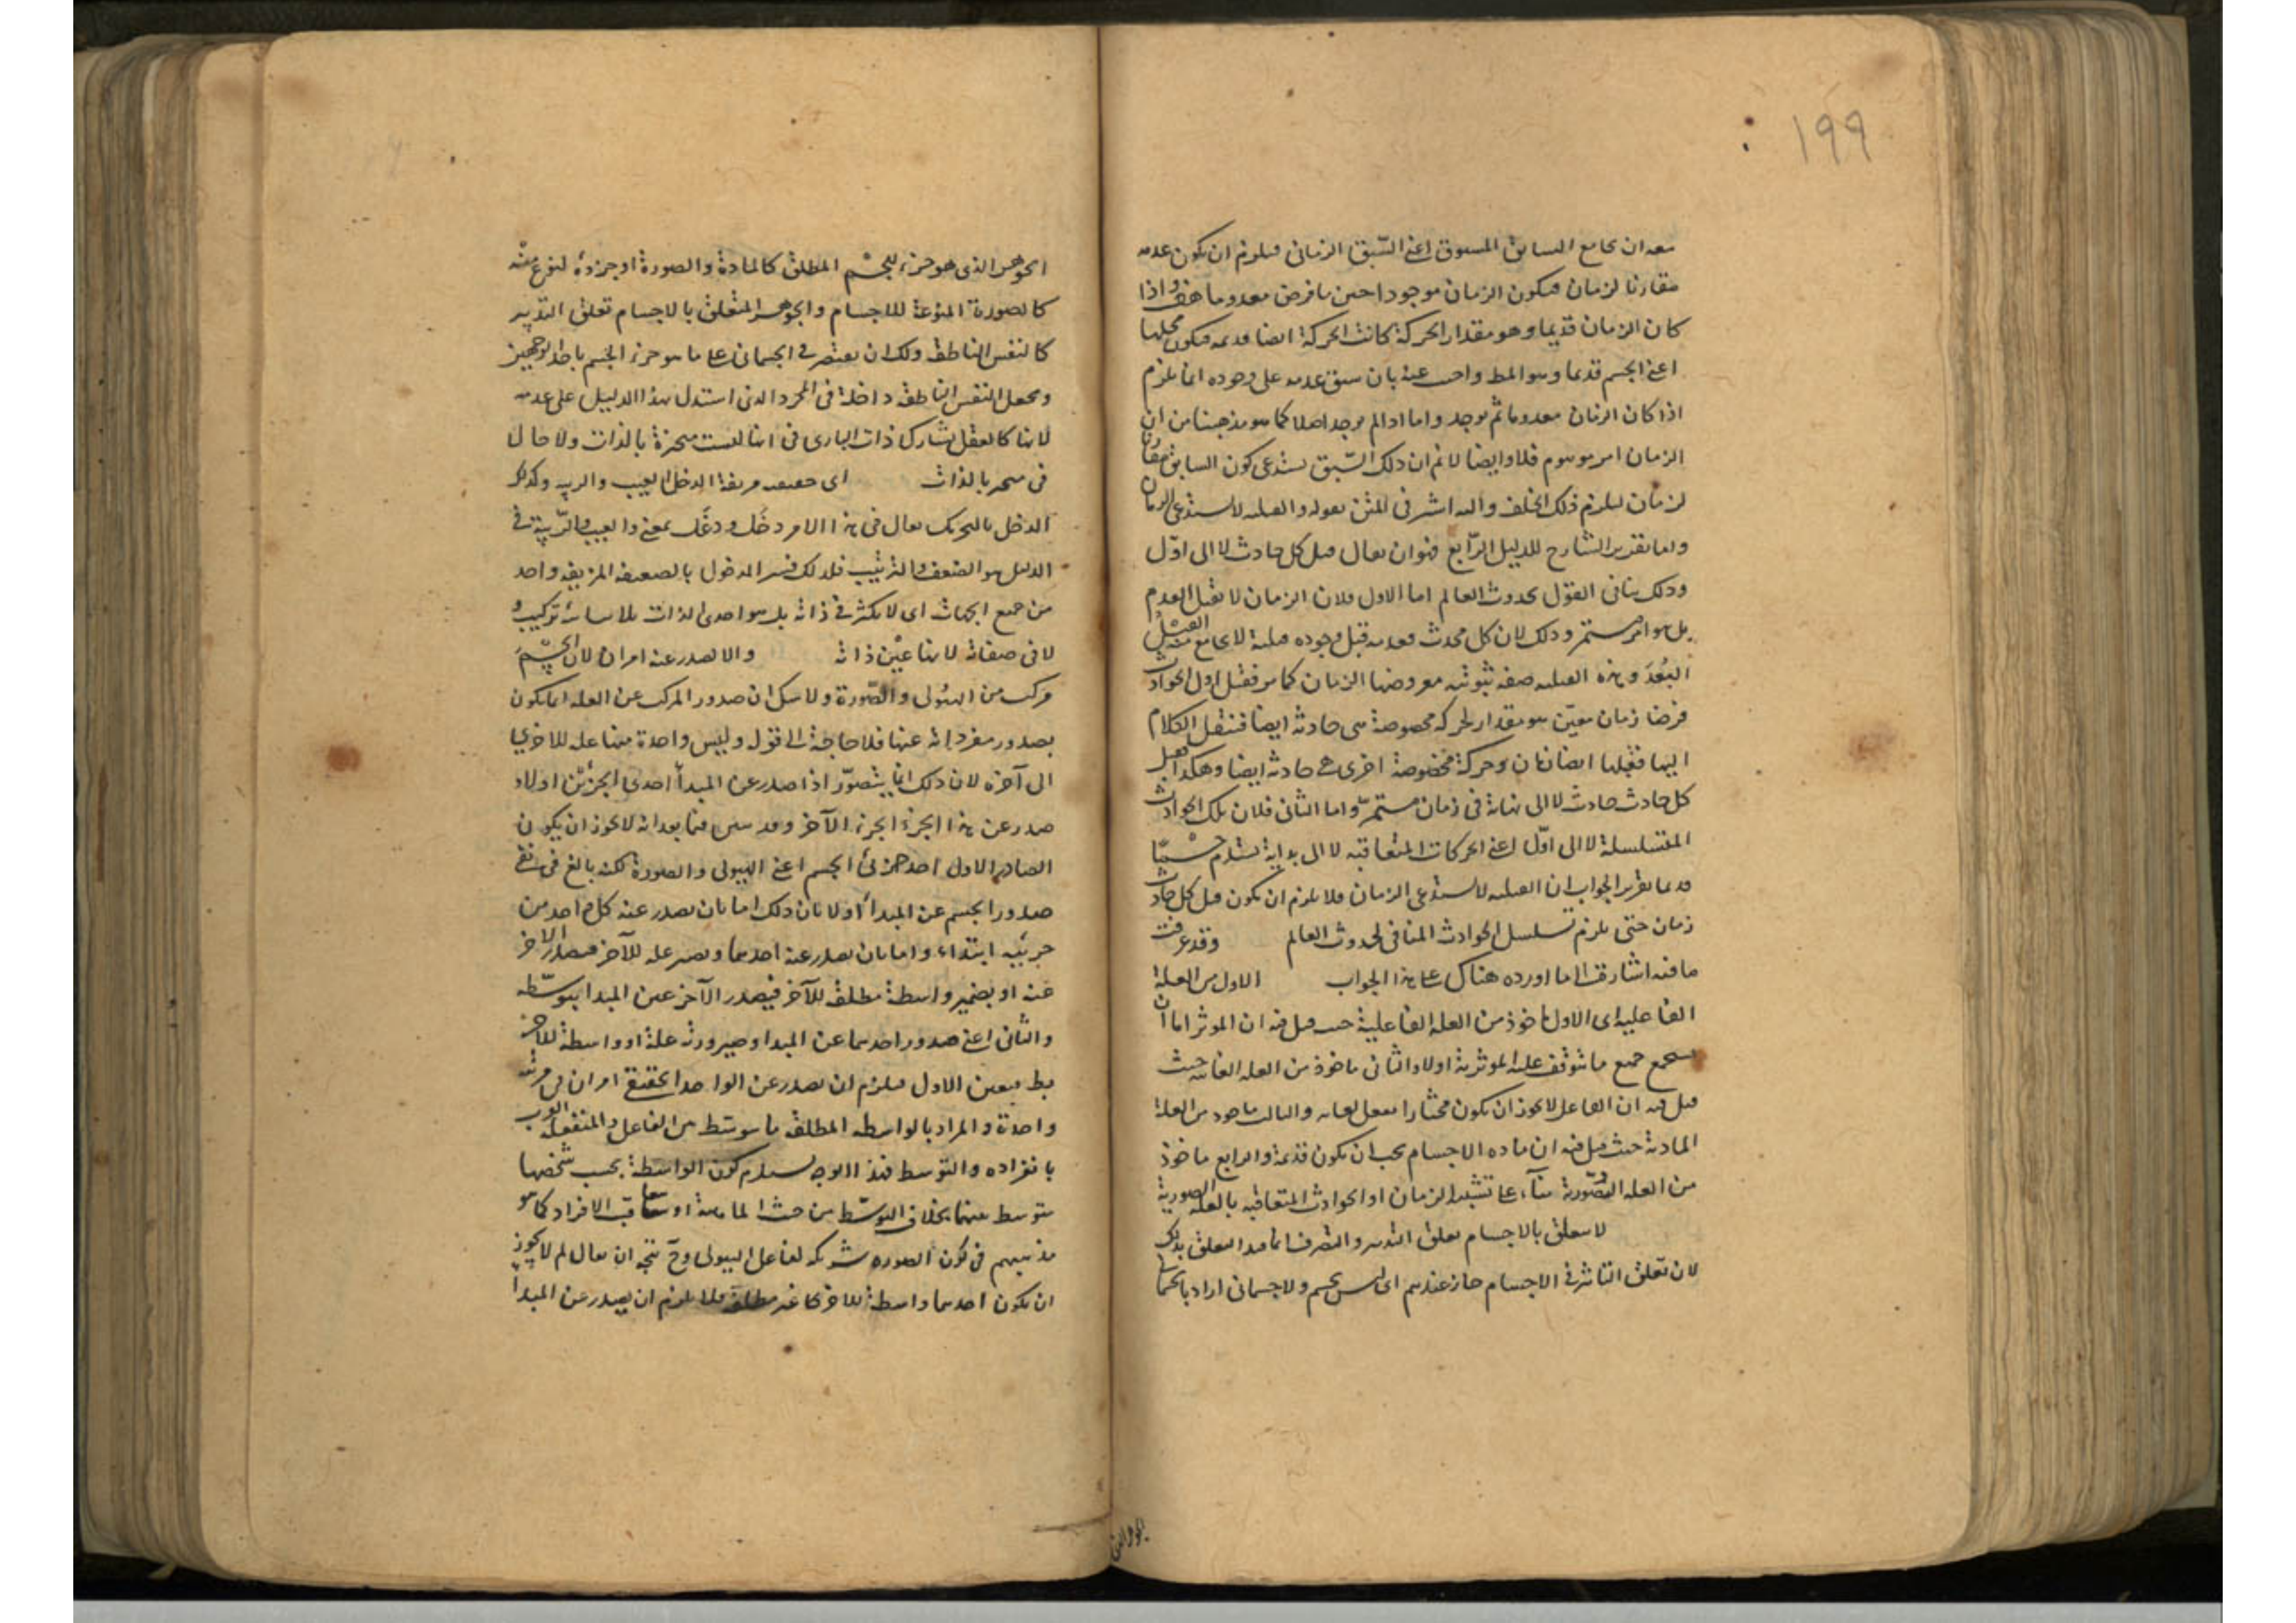 ١٩٩
معه ان يجامع السابق المسبوق اعنى السّبق الزمانى فيلزم ان يكون عدمه
مقارنا لزمان فيكون الزمان موجودا حين ما فرض معدوما هف واذا
كان الزمان قديما وهو مقدار الحركة كانت الحركة ايضا قديمه فيكون محلها
اعنى الجسم قديما وهو المط واجيب عنه بان سبق عدمه على وجوده انما يلزم
اذا كان الزمان معدوما ثم يوجد واما اذا لم يوجد اصلا كما هو مذهبنا من ان
الزمان امر موهوم فلا وايضا لا نم ان ذلك السّبق يستدعى كون السابق مقارنا
لزمان ليلزم ذلك الخلف واليه اشير فى المتن بقوله والقبلية لا تستدعى الزمان
واما تقدير الشارح للدليل الرّابع فهو ان يقال قبل كل حادث لا الى اوّل
وذلك ينافى القول بحدوث العالم اما الاول فلان الزمان لا يقبل العدم
بل هو امر مستمر وذلك لان كل محدث فعدمه قبل وجوده قبلية لا يجامع فيه القبل
البُعدَ وهذه القبلية صفة ثبوتية معروضها الزمان كما مر فقبل اول الحوادث
فرضا زمان معيّن هو مقدار لحركة مخصوصة هى حادثة ايضا فننقل الكلام
اليها فقبلها ايضا زمان وحركة مخصوصة اخرى هى حادثة ايضا وهكذا فقبل
كل حادث حادث لا الى نهاية فى زمان مستمرّ واما الثانى فلان تلك الحوادث
المتسلسلة لا الى اوّل اعنى الحركات المتعاقبة لا الى بداية تستلزم جسما
قديما تقرير الجواب ان القبلية لا تستدعى الزمان فلا يلزم ان يكون قبل كل حادث
زمان حتى يلزم تسلسل الحوادث المنافى لحدوث العالم وقد عرفت
ما فيه اشارة الى ما اورده هناك على هذا الجواب الاول من العلة
الفاعليه اى الاول ماخوذ من العلة الفاعلية حيث قيل فيه ان الموثر اما ان
يستجمع جميع ما يتوقف عليه الموثرية اولا والثانى ماخوذ من العلة الغائية حيث
قيل فيه ان الفاعل لا يجوز ان يكون مختارا يفعل لغاية والثالث ماخوذ من العلة
المادية حيث قيل فيه ان ماده الاجسام يجب ان يكون قديمة والرابع ماخوذ
من العلة الصّورية بناء على تشبيه الزمان او الحوادث المتعاقبة بالعلة الصورية
لا يتعلق بالاجسام تعلق التدبير والتصرف انما قيد التعلق بذلك
لان تعلق التاثير فى الاجسام جاز عندهم اى ليس بجسم ولا جسمانى اراد بالجسمانى
الجوهر الذى
الجوهر الذى هو جزء للجسم المطلق كالمادة والصورة او جزء لنوع منه
كالصورة المنوعة للاجسام والجوهر المتعلق بالاجسام تعلق التدبير
كالنفس الناطقة ولك ان تقتصر فى الجسمانى على ما هو جزء الجسم باحد الوجهين
وتجعل النفس الناطقة داخلة فى المجرد الذى استدل بهذا الدليل على عدمه
لانها كالعقل تشارك ذات البارى فى انها ليست متحيزة بالذات ولا حال
فى متحيز بالذات اى ضعيفة مزيفة الدخل العيب والريبه وكذلك
الدخل بالتحريك يقال فى هذا الامر دخَل ودغَل بمعنى والعيب والرّيبة فى
الدليل هو الضعف والتزييف فلذلك فسر المدخول بالضعيفة المزيفة واحد
من جميع الجهات اى لا تكثر فى ذاته بل هو احدى الذات بلا شائبة تركيب و
لا فى صفاته لانها عين ذاته والا لصدر عنه امران لان الجسم
مركب من الهيولى والصّورة ولا شك ان صدور المركب عن العلة انما يكون
بصدور مفرداته عنها فلا حاجة الى قوله وليس واحدة منهما علة للاخرى
الى آخره لان ذلك انما يتصوّر اذا صدر عن المبدأ احدى الجزئين اولا و
صدر عن هذا الجزء الجزء الآخر وقد بين فيما بعد انه لا يجوز ان يكون
الصادر الاول احد جزئى الجسم اعنى الهيولى والصورة لكنه بالغ فى نفى
صدور الجسم عن المبدأ اولا بان ذلك اما بان يصدر عنه كل واحد من
جزئيه ابتداء واما بان يصدر عنه احدهما ويصير علة للآخر فيصدر الاخر
عنه او يصير واسطة مطلقة للآخر فيصدر الآخر عن المبدا بتوسّطه
والثانى اعنى صدور احدهما عن المبدا وصيرورته علة او واسطة للآخر
بط فتعين الاول فيلزم ان يصدر عن الواحد الحقيقى امران فى مرتبة
واحدة والمراد بالواسطة المطلقة ما يتوسط بين الفاعل والمنفعل القريب
بانفراده والتوسط فهذا الوجه يستلزم كون الواسطة بحسب شخصها
متوسط بينهما بخلاف التوسّط من حيث الماهية او تعاقب الافراد كما هو
مذهبهم فى كون الصورة شريكة لفاعل الهيولى وح يتجه ان يقال لم لا يجوز
ان يكون احدهما واسطة للاخر كما غير مطلقة فلا يلزم ان يصدر عن المبدا